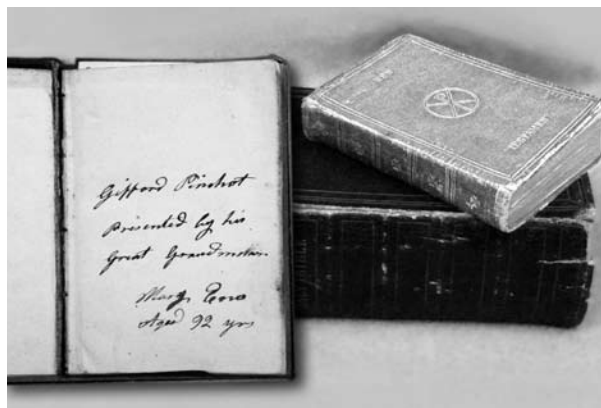 Gifford Pinchot
Presented by his
Great Grandmother
Mary Eno
Aged 92 yrs
NEW
TESTAMENT